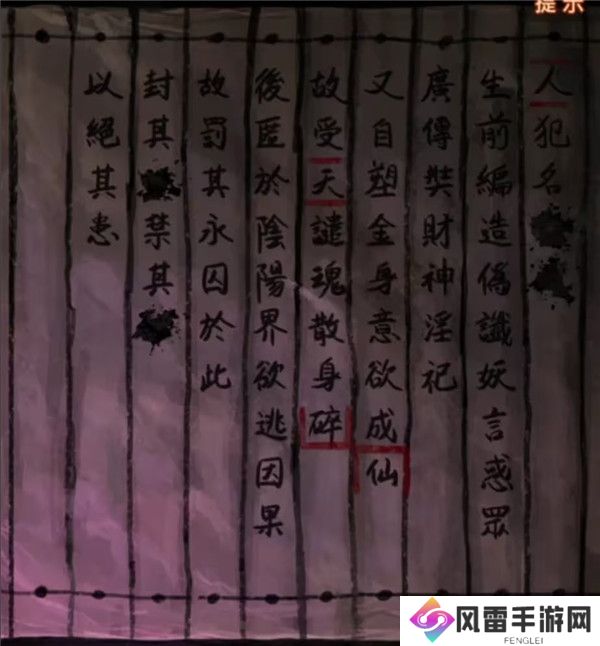 提示
人犯名
生前編造偽讖妖言惑眾
廣傳奘財神淫祀
又自塑金身意欲成仙
故受天譴魂散身碎
後匿於陰陽界欲逃因果
故罰其永囚於此
封其 禁其
以絕其患
风雷手游网
FENGLEI